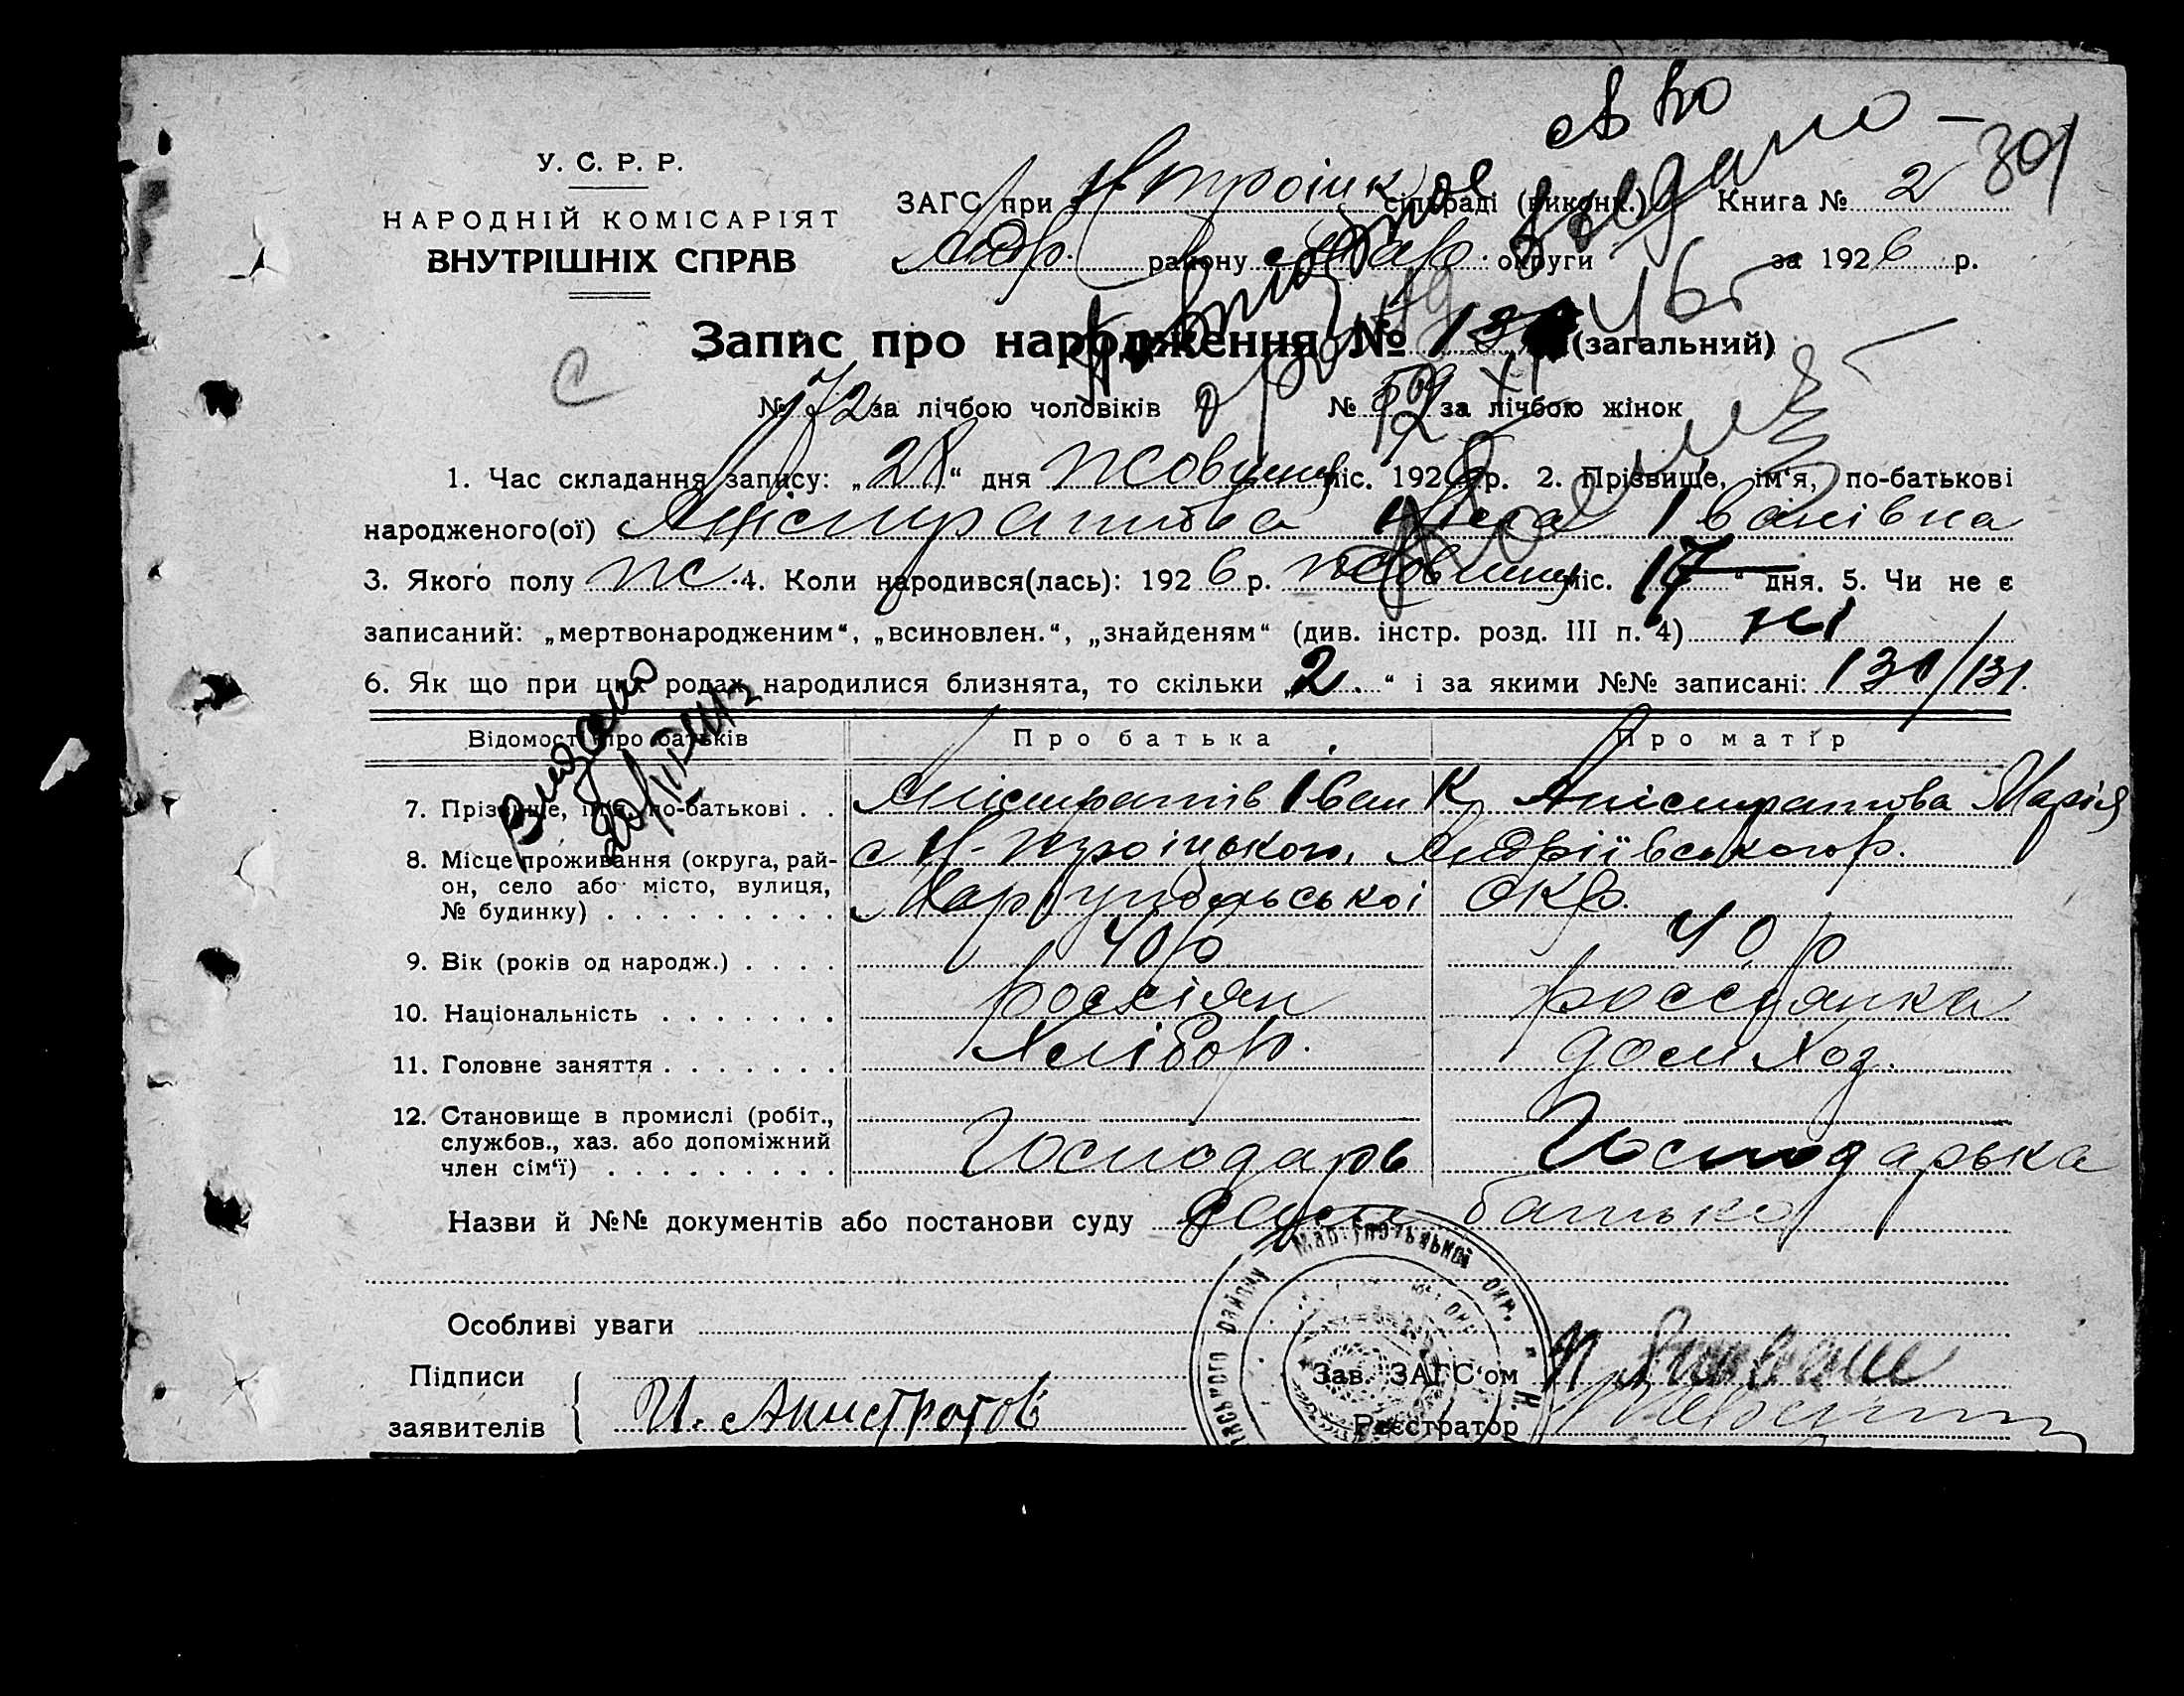 У. С. Р. Р.
НАРОДНІЙ КОМІСАРІЯТ
ВНУТРІШНІХ СПРАВ
ЗАГС при Н Троіцк сільраді (виконк.) Книга № 2 301
Адр. району Мар. округи за 1926 р.
Видано
Запис про народження № 13 (загальний)
№ 72 за лічбою чоловіків № 59 за лічбою жінок
1. Час складання запису: „28“ дня жовтня міс. 1926 р. 2. Прізвище, ім'я, по-батькові
народженого(ої) Анистратова Іванівна
3. Якого полу ж. 4. Коли народився(лась): 1926 р. жовтня міс. 17 “ дня. 5. Чи не є
записаний: „мертвонародженим“, „всиновлен.“, „знайденям“ (див. інстр. розд. III п. 4) ні
6. Як що при цих родах народилися близнята, то скільки „2.“ і за якими №№ записані: 130/131.
Видано
Відомості про батьків Про батька Про матір
7. Прізвище, ім'я, по-батькові . . Анистратів Іван К Анистратова Марія
8. Місце проживання (округа, рай- с Н-Троіцького, Андріївського р.
он, село або місто, вулиця, Маріупольської окр.
№ будинку) . . . . . . . . .
9. Вік (років од народж.) . . . . 40 р 40 р
10. Національність . . . . . . . россіян россіянка
11. Головне заняття . . . . . . . Хлібор. дом Хоз.
12. Становище в промислі (робіт.,
службов., хаз. або допоміжний Господарь Господарька
член сім'ї) . . . . . . . . .
Назви й №№ документів або постанови суду батько
Маріупольської окр.
Особливі уваги
Підписи Зав. ЗАГС'ом
заявителів И. Анистратов Реєстратор